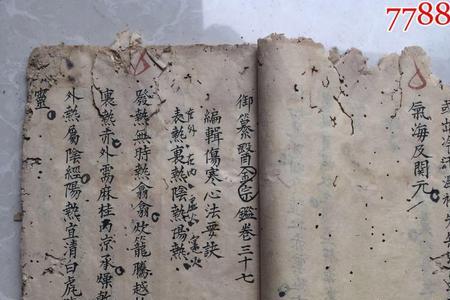 7788
氣海及關元
御纂醫金宗鑑卷三十七
編輯傷寒心法要訣
在外 在內 虛火 實火
表熱裏熱陰熱陽熱
發熱無時熱翕翕炊籠騰越
裏熱赤外需麻桂 涼承燥
外熱屬陰經陽熱宜清白虎
靈